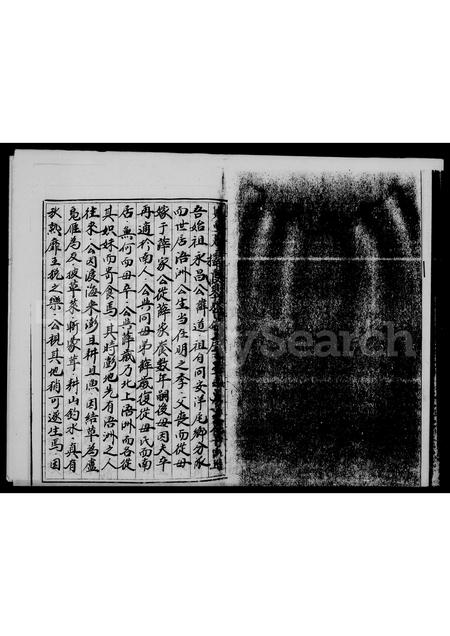 吾始祖永昌公辭道祖自同安洋尾鄉分承
而世居浯洲公生當在明之季父喪而從母
嫁于薛家公從薛眷數年嗣後母因夫卒
再適於南人公與同母弟薛歲復從母氏而南
居無何而母卒公與薛歲乃北上浯洲而各從
其姊妹而寄食焉其時澎地先有浯洲之人
往來公因渡海來澎且耕且漁因結草為廬
竟住焉及披草萊斬蒙茸耕山釣水真有
秋熟靡王稅之樂公視其地稍可遂生焉因